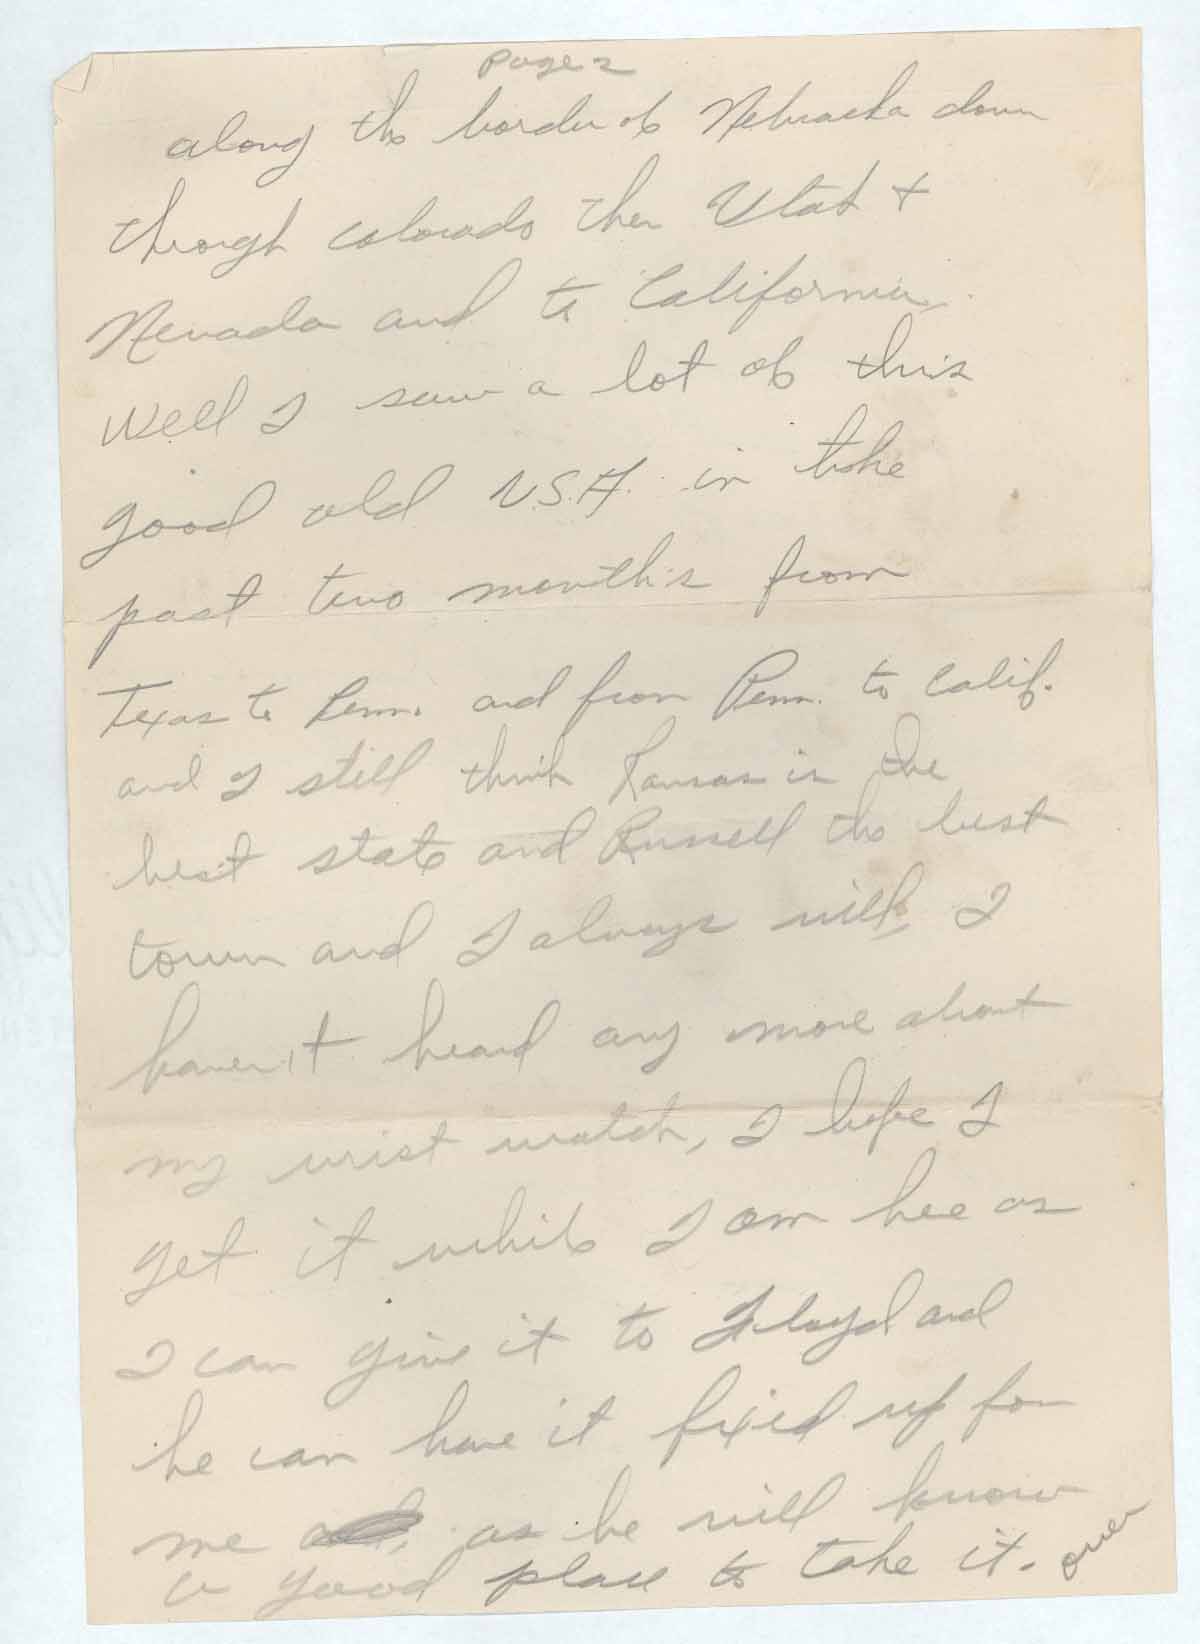 Page 2
along the border of Nebracka down
through colorado then Utah +
Nevada and to California.
Well I saw a lot of this
good old U.S.A. in the
past two month's from
Texas to Penn. and from Penn. to Calif.
and I still think Kansas is the
best state and Russell the best
town and I always will. I
haven't heard any more about
my wrist watch, I hope I
get it while I am hee as
I can give it to Floyd and
he can have it fixed up for
me as he will know
a good place to take it. over